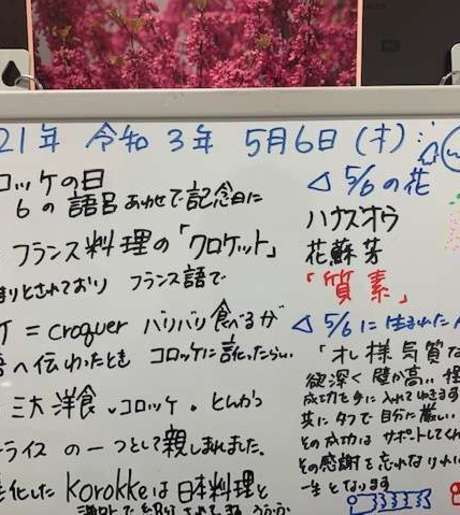 21年 令和3年 5月6日(木)
ロッケの日
6の語呂あわせで記念日に
フランス料理の「クロケット」
まりとされており フランス語で
ケ = croquer バリバリ食べるが
語へ伝わったとも コロッケに訛ったらしい
三大洋食 コロッケ・とんかつ
ーライス の一つとして親しまれました。
化した Korokkeは日本料理と
△ 5/6の花
ハナズオウ
花蘇芳
「質素」
△ 5/6に生まれた
「オレ様気質な
欲深く 壁が高い
成功を手に入れて
共にタフで自分に厳しい
その成功は サポートしてくれ
その感謝を忘れな
一生となります